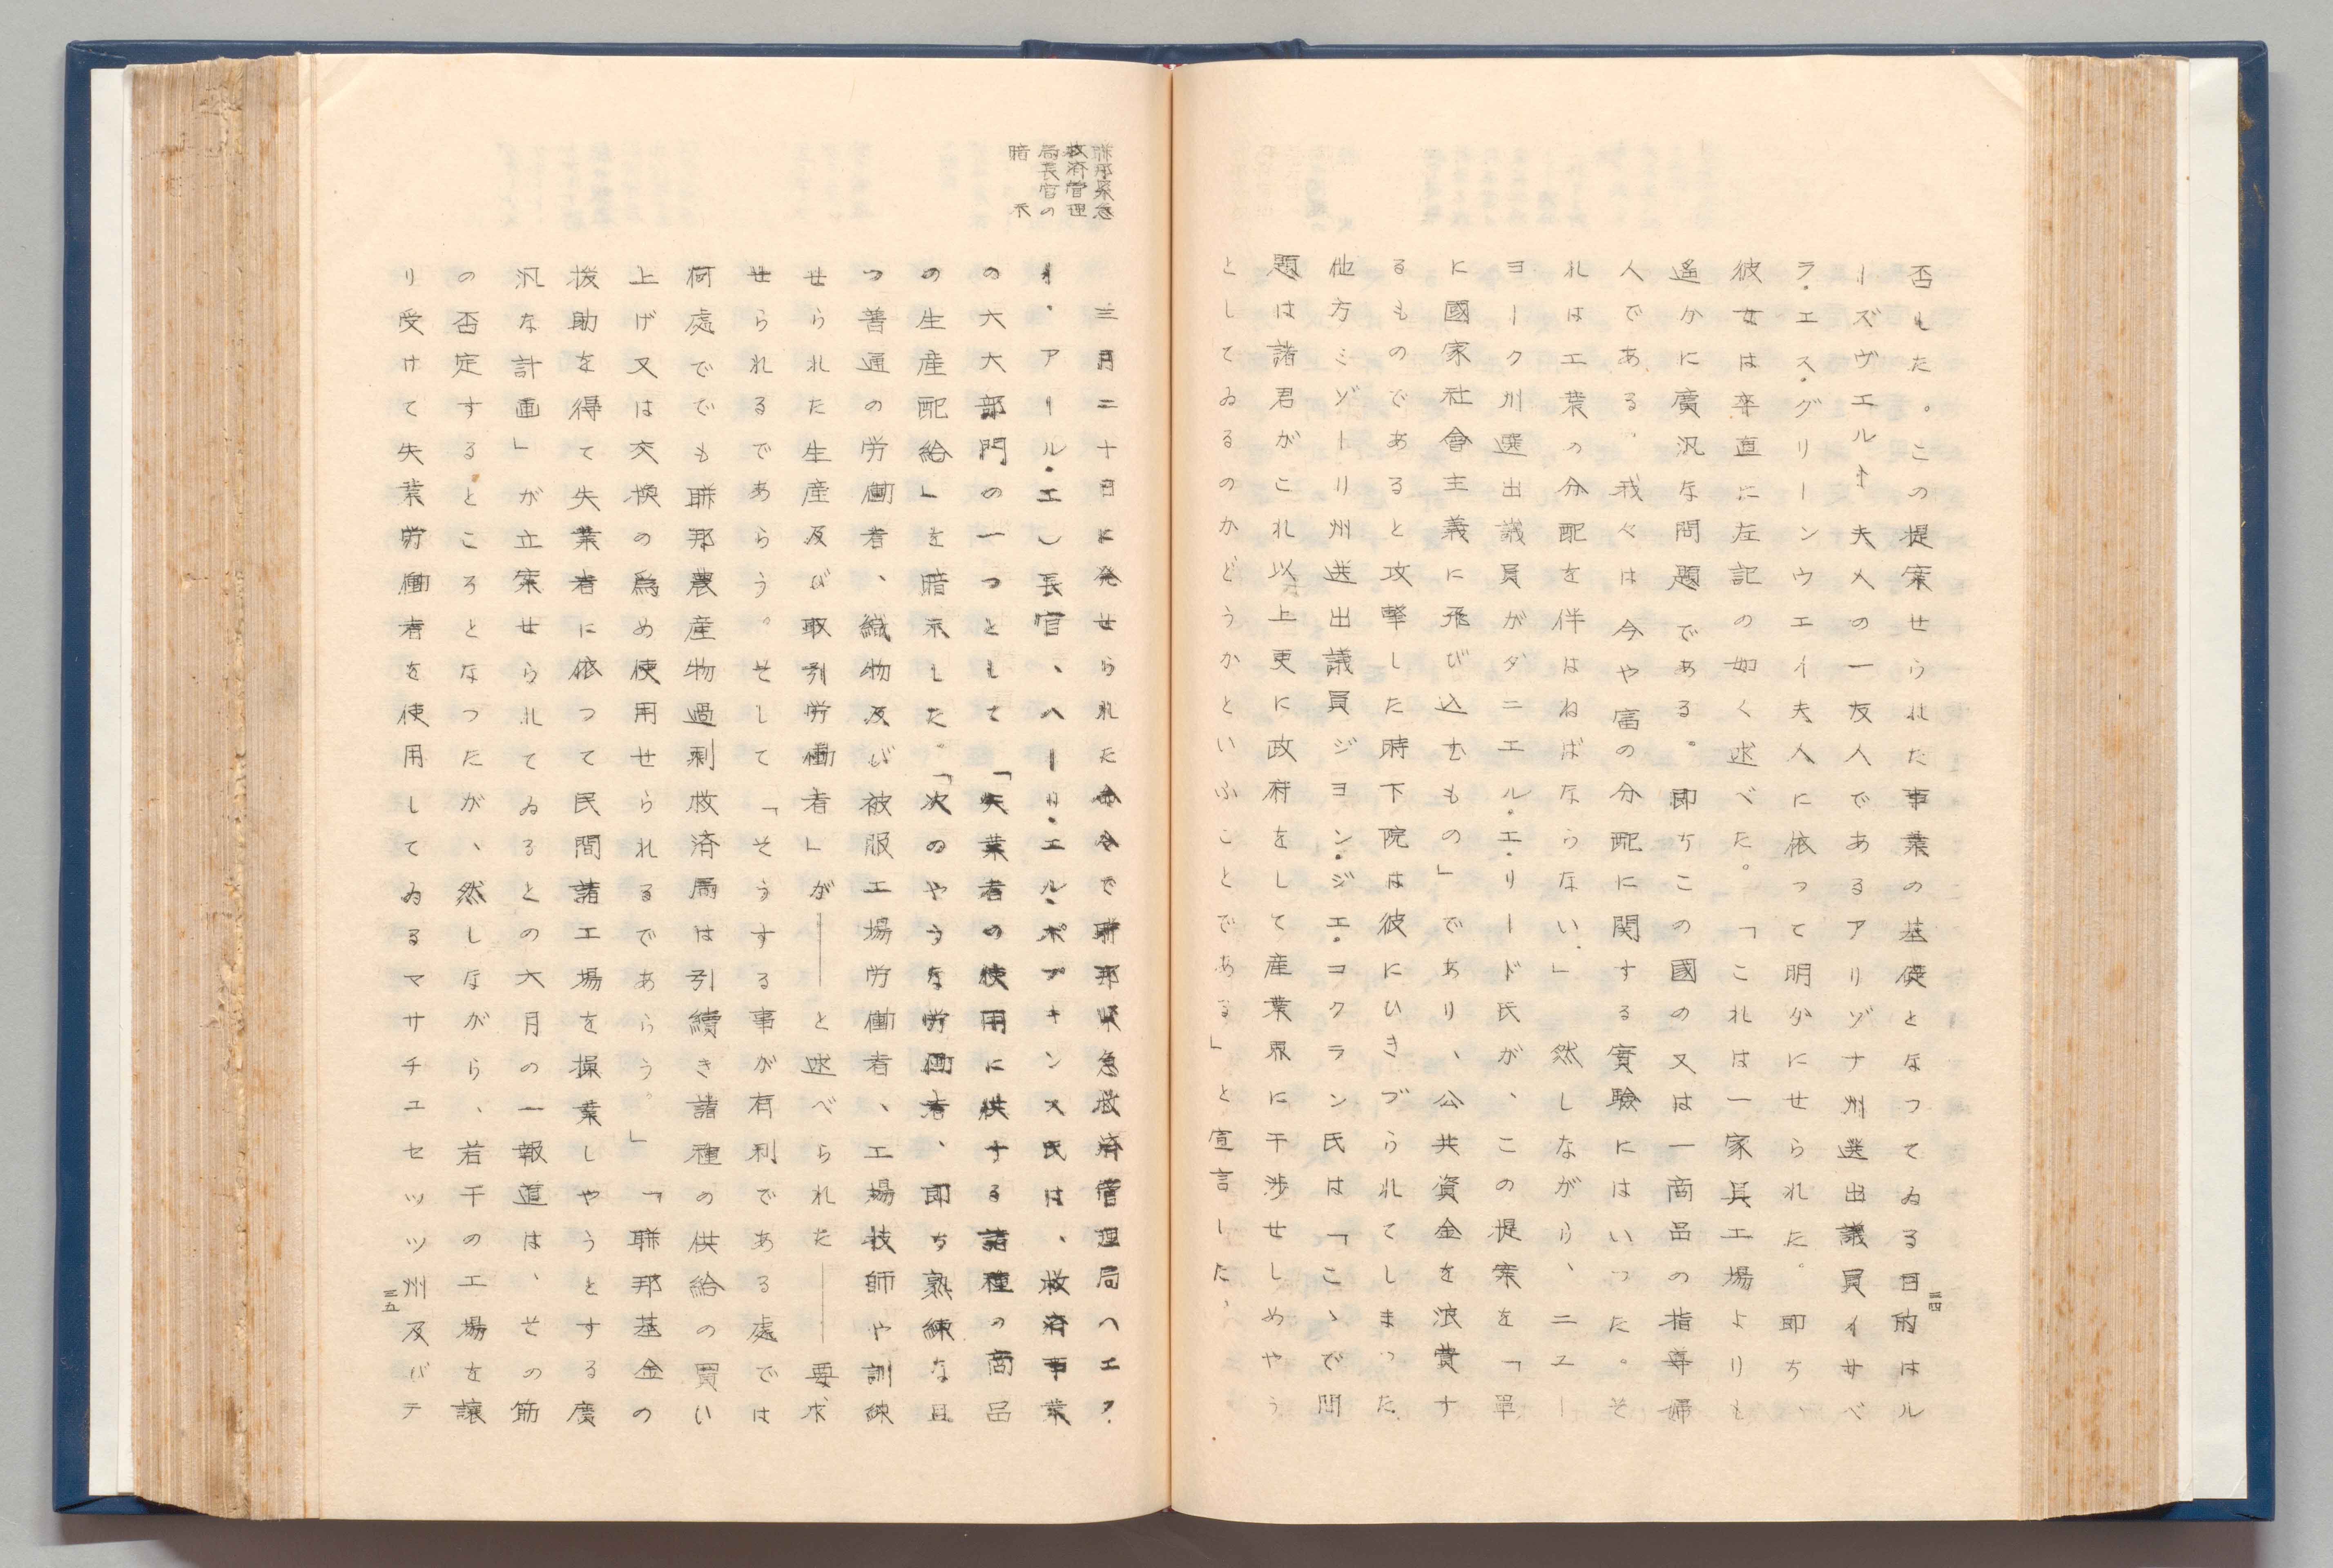 否した。この提案せられた事業の基礎となつてゐる目的はル
ーズヴエルト夫人の一友人であるアリゾナ州選出議員イサベ
ラ・エス・グリーンウエイ夫人に依つて明かにせられた。即ち、
彼女は卒直に左記の如く述べた。「これは一家具工場よりも
遙かに廣汎な問題である。即ちこの國の又は一商品の指導婦
人である。我々は今や富の分配に関する實驗にはいつた。そ
れは工業の分配を伴はねばならない」然しながら、ニユー
ヨーク州選出議員がダニエル・エ・リード氏が、この提案を「單
に國家社會主義に飛び込むもの」であり、公共資金を浪費す
るものであると攻擊した時下院は彼にひきづられてしまつた
他方ミゾーリ州送出議員ジヨン・ジエ・コクラン氏は「こゝで問
題は諸君がこれ以上更に政府をして産業界に干渉せしめやう
としてゐるのかどうかといふことである」と宣言した、
三四
聯邦緊急
救済管理
局長官の
暗示
三月二十日に発せられた命令で聯邦緊急救済管理局(エフ・
イ・アール・エ)長官、ハーリ・エル・ポプキンス氏は、救済事業
の六大部門の一つとして「失業者の使用に供する諸種の商品
の生産配給」を暗示した。「次のやうな労働者、即ち熟練な且
つ普通の労働者、織物及び被服工場労働者、工場技師や訓練
せられた生産及び取引労働者」が――と述べられた――要求
せられるであらう。そして「そうする事が有利である處では
何處ででも聯邦農産物過剰救済局は引続き諸種の供給の買い
上げ又は交換の為め使用せられるであらう。」「聯邦基金の
援助を得て失業者に依つて民間諸工場を操業しやうとする廣
汎な計画」が立案せられてゐるとの六月の一報道は、その筋
の否定するところとなつたが、然しながら、若干の工場を譲
り受けて失業労働者を使用してゐるマサチユセツツ州及バテ
三五